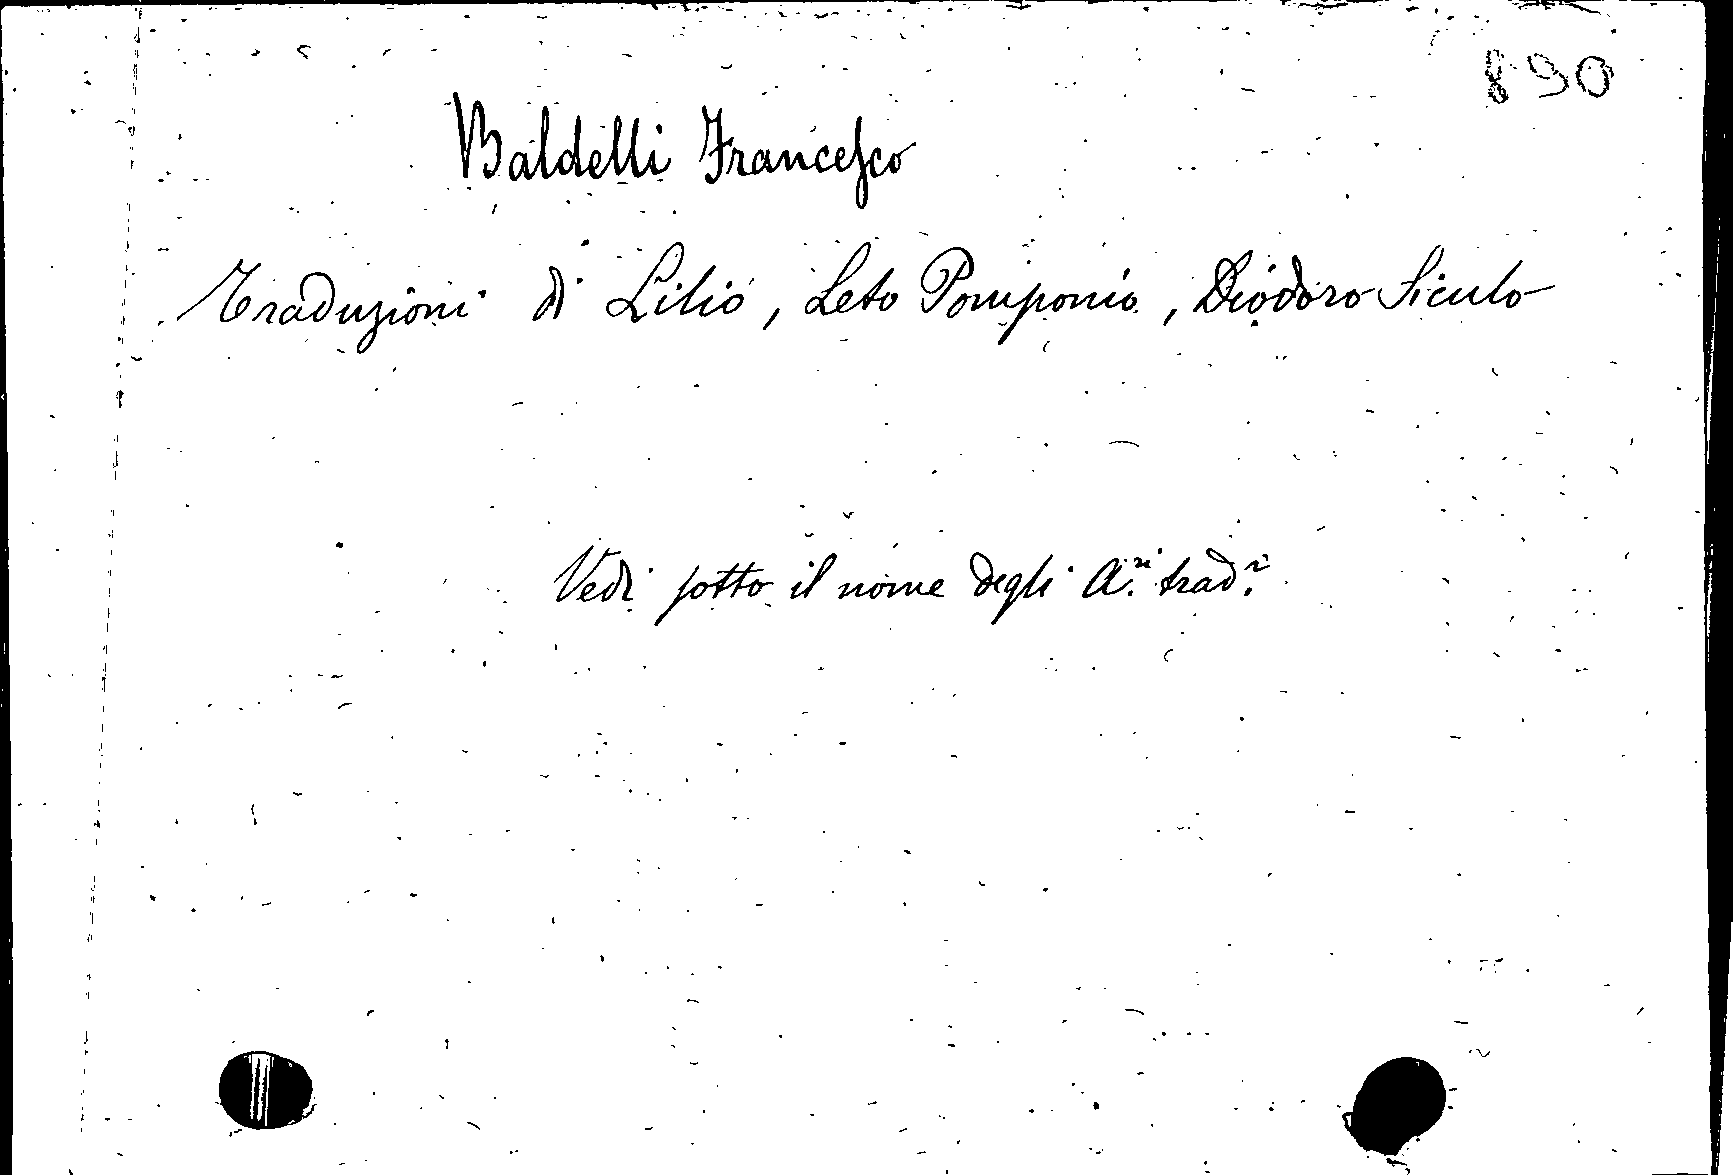 890
Baldelli Francesco
Traduzioni di Lilio, Leto Pomponio, Diodoro Siculo
Vedi sotto il nome degli A.ri trad.i